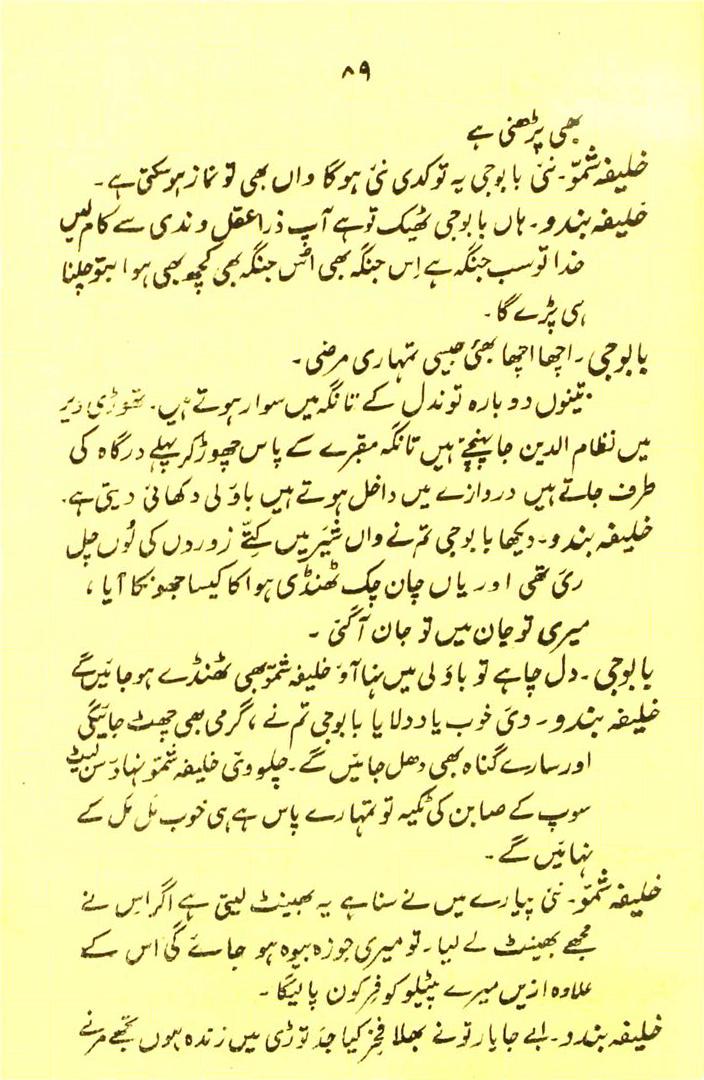 ۸۹
بھی پڑھنی ہے
خلیفہ شمّو۔ نئی بابوجی یہ تو کدی نئی ہوگا واں بھی تو نماز ہوسکتی ہے۔
خلیفہ بندو۔ ہاں بابوجی ٹھیک تو ہے آپ ذرا عقل وندی سے کام لیں
خدا تو سب جنگہ ہے اِس جنگہ بھی اُس جنگہ بھی کچھ بھی ہو ابتو چلنا
ہی پڑے گا۔
بابوجی۔ اچھا اچھا بھئی جیسی تمہاری مرضی۔
تینوں دوبارہ توندل کے تانگہ میں سوار ہوتے ہیں۔ تھوڑی دیر
میں نظام الدین جا پہنچتے ہیں تانگہ مقبرے کے پاس چھوڑ کر پہلے درگاہ کی
طرف جاتے ہیں دروازے میں داخل ہوتے ہیں باؤلی دکھائی دیتی ہے۔
خلیفہ بندو۔ دیکھا بابوجی تم نے واں شیَر میں کِتّے زوروں کی لُوں چل
رئی تھی اور یاں چان چک ٹھنڈی ہوا کا کیسا جھونکا آیا،
میری تو جان میں تو جان آگئی۔
بابوجی۔ دل چاہے تو باؤلی میں نہا آؤ خلیفہ شمّو بھی ٹھنڈے ہوجائیں گے
خلیفہ بندو۔ وئی خوب یاد دلایا بابوجی تم نے، گرمی بھی چھٹ جائیگی
اور سارے گناہ بھی دھل جائیں گے۔ چلو وئی خلیفہ شمّو نہاؤ سن لیٹ
سوپ کے صابن کی ٹکیہ تو تمہارے پاس ہے ہی خوب مَل مَل کے
نہائیں گے۔
خلیفہ شمّو۔ نئی پیارے میں نے سنا ہے یہ بھینٹ لیتی ہے اگر اس نے
مجھے بھینٹ لے لیا۔ تو میری جوزہ بیوہ ہو جائے گی اس کے
علاوہ ازیں میرے پٹیلو کو فِر کون پالیگا۔
خلیفہ بندو۔ ابے جا یار تو نے بھلا فِخر کیا جد توڑی میں زندہ ہوں تجھے مرنے